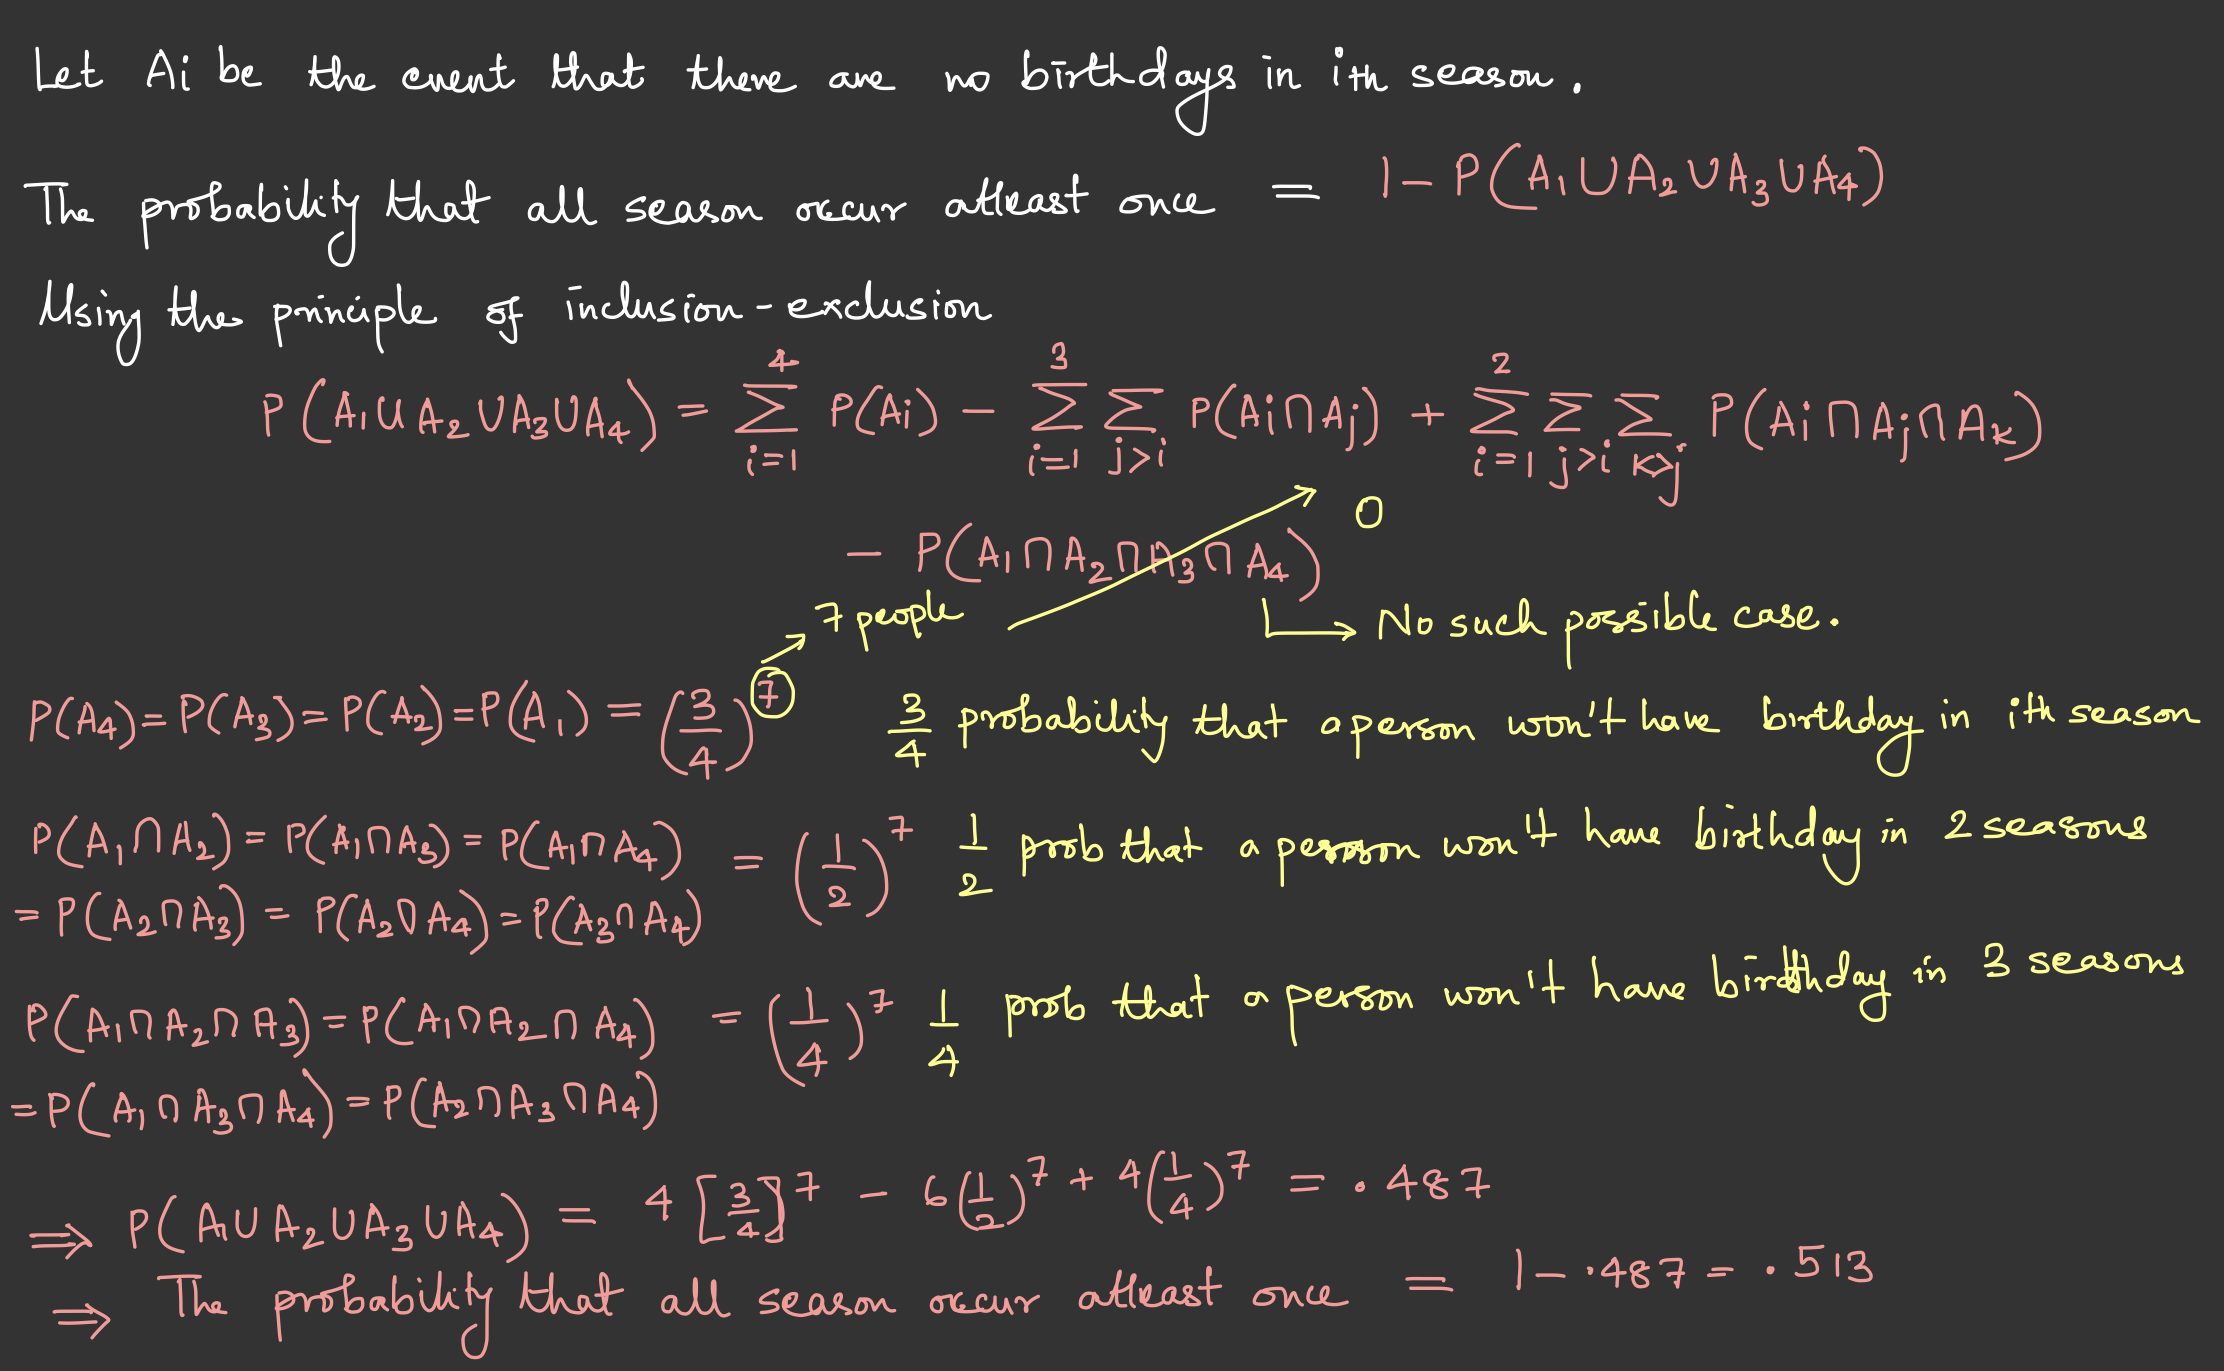 Let Ai be the event that there are no birthdays in ith season.
The probability that all season occur atleast once = 1 - P(A₁∪A₂∪A₃∪A₄)
Using the principle of inclusion-exclusion
P(A₁∪A₂∪A₃∪A₄) = ∑_{i=1}^{4} P(Ai) - ∑_{i=1}^{3} ∑_{j>i} P(Ai∩Aj) + ∑_{i=1}^{2} ∑_{j>i} ∑_{k>j} P(Ai∩Aj∩Ak)
- P(A₁∩A₂∩A₃∩A₄) → 0
7 people
→ No such possible case.
P(A₄) = P(A₃) = P(A₂) = P(A₁) = (3/4)⁷ 3/4 probability that a person won't have birthday in ith season
P(A₁∩A₂) = P(A₁∩A₃) = P(A₁∩A₄) = (1/2)⁷ 1/2 prob that a person won't have birthday in 2 seasons
= P(A₂∩A₃) = P(A₂∩A₄) = P(A₃∩A₄)
P(A₁∩A₂∩A₃) = P(A₁∩A₂∩A₄) = (1/4)⁷ 1/4 prob that a person won't have birthday in 3 seasons
= P(A₁∩A₃∩A₄) = P(A₂∩A₃∩A₄)
⇒ P(A₁∪A₂∪A₃∪A₄) = 4[3/4]⁷ - 6(1/2)⁷ + 4(1/4)⁷ = .487
⇒ The probability that all season occur atleast once = 1 - .487 = .513